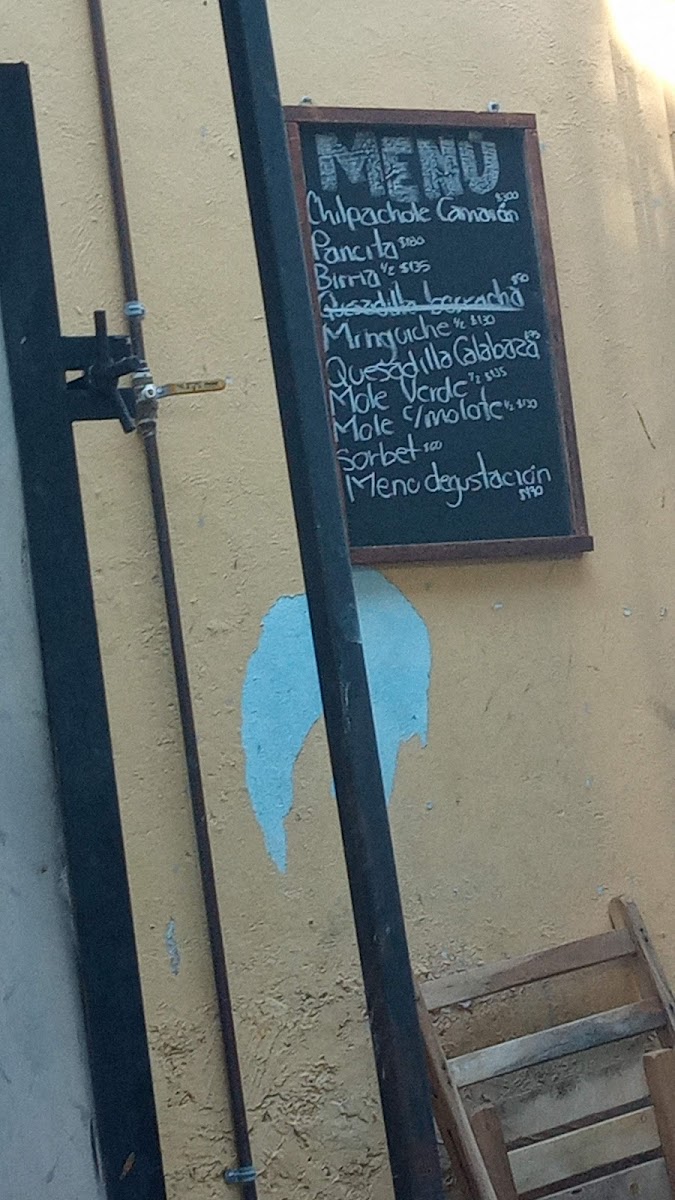 MENÚ
Chilpachole Camarón $300
Pancita $180
Birria ½ $135
Quesadilla borracha $90
Minguiche ½ $130
Quesadilla Calabaza $95
Mole Verde ½ $135
Mole c/molote ½ $130
Sorbet $60
Menu degustación $490